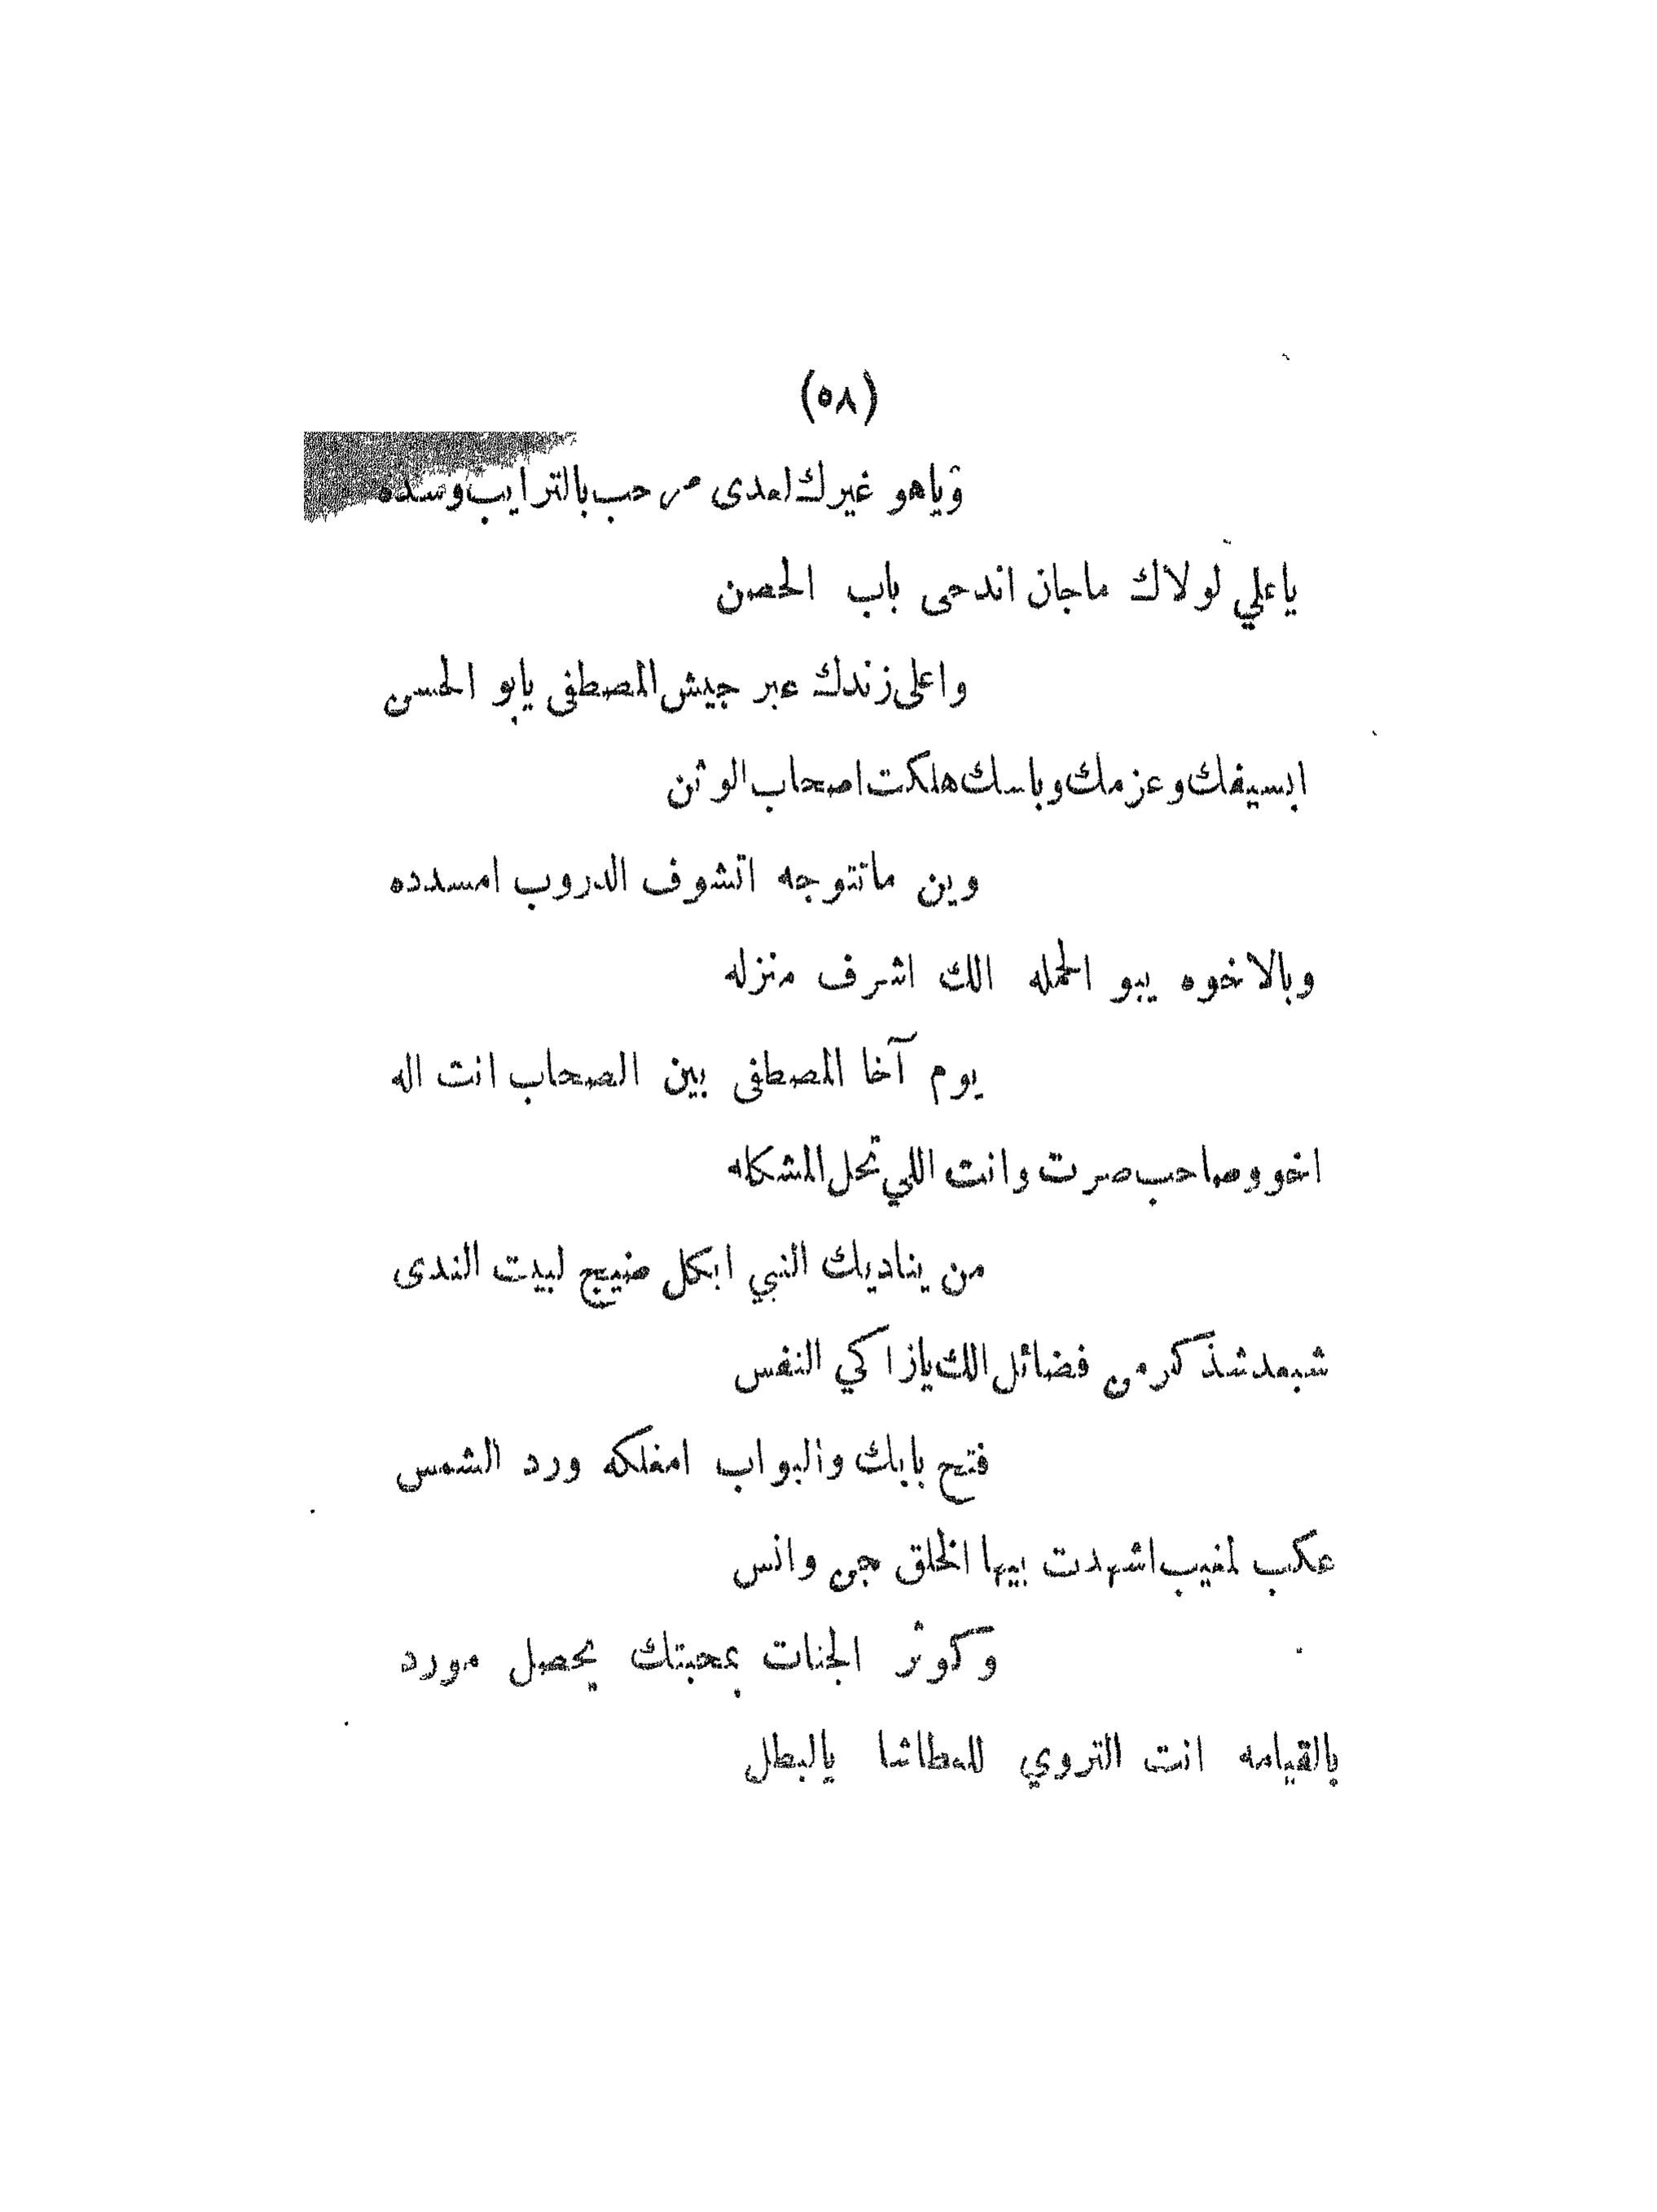 (٥٨)
وياهو غيرك لعدى مرحب بالترايب وسده
ياعلي لولاك ماجان اندحى باب الحصن
واعلى زندك عبر جيش المصطفى يابو الحسن
ابسيفك وعزمك وباسك هلكت اصحاب الوثن
وين ماتتوجه اتشوف الدروب امسدده
وبالاخوه يبو الحمله الك اشرف منزله
يوم آخا المصطفى بين الصحاب انت اله
اخو وصاحب صرت وانت اللي تحل المشكله
من يناديك النبي ابكل ضيج لبيت الندى
شبعد شذكر من فضائل الك يازاكي النفس
فتح بابك والبواب امغلكه ورد الشمس
عكب لمغيب اشهدت بيها الخلق جن وانس
وكوثر الجنات بمحبتك يحصل مورد
بالقيامه انت التروي للعطاشا يالبطل